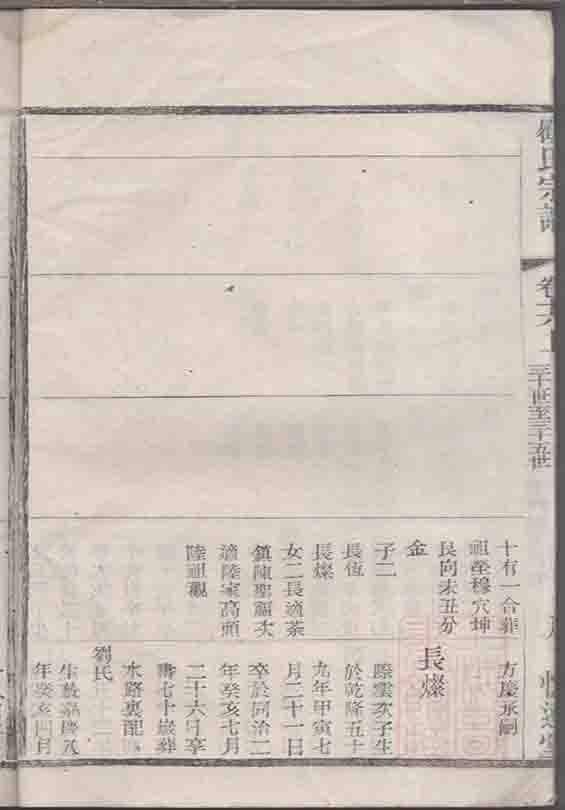 氏宗譜
卷
三十世至三十五世
十有一合葬
祖塋穆穴坤
艮向未丑分
金
子二
長恆
長燦
女二長適茶
鎮陳聖 次
適陸家高頭
陸祖觀
方慶承嗣
長燦
際雲次子生
於乾隆五十
九年甲寅七
月二十一日
卒於同治二
年癸亥七月
二十六日卒
壽七十歲葬
水路裏配
劉氏
生於嘉慶八
年癸亥四月